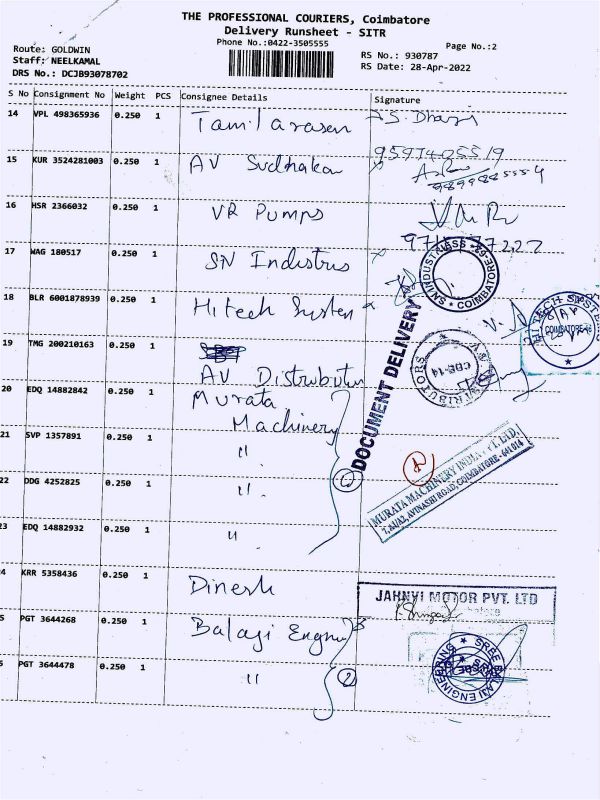 THE PROFESSIONAL COURIERS, Coimbatore
Delivery Runsheet - SITR
Phone No.:0422-3505555
Page No.:2
Route: GOLDWIN
Staff: NEELKAMAL
DRS No.: DCJB93078702
RS No.: 930787
RS Date: 28-Apr-2022
S No Consignment No Weight PCS Consignee Details Signature
14 VPL 498365936 0.250 1 Tamilarasen
15 KUR 3524281003 0.250 1 AV Sudhakar
16 HSR 2366032 0.250 1 VR Pumps
17 WAG 180517 0.250 1 SN Industris
SN INDUSTRIES COIMBATORE
18 BLR 6001878939 0.250 1 Hitech System
HI TECH SYSTEMS COIMBATORE
DOCUMENT DELIVERY
19 TMG 200210163 0.250 1
AV Distributer
CBE-14
20 EDQ 14882842 0.250 1 Murata
Machinery
21 SVP 1357891 0.250 1 "
1
MURATA MACHINERY INDIA PVT. LTD.
AVINASHI ROAD, COIMBATORE - 641014
22 DDG 4252825 0.250 1 "
23 EDQ 14882932 0.250 1 "
4 KRR 5358436 0.250 1 Dinesh
JAHNVI MOTOR PVT. LTD
5 PGT 3644268 0.250 1 Balagi Engnr
PGT 3644478 0.250 1 "
2
SREE BALAJI ENGINEERING